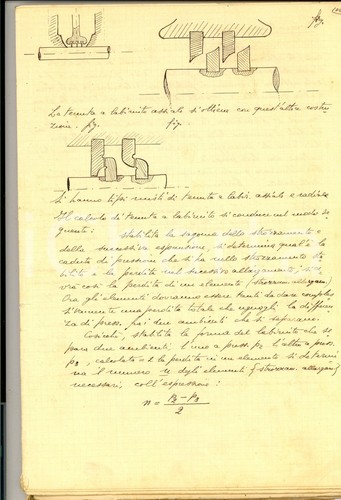 fig.
La tenuta a labirinto assiale si ottiene con quest'altra costru-
zione. fig. fig.
Si hanno tipi misti di tenuta a labir. assiale e radiale
Il calcolo di tenuta a labirinto si conduce nel modo se
guente: stabilita la sagoma dello strozzamento e
della successiva espansione, si determina qual'è la
caduta di pressione che si ha nello strozzamento
e la perdita nel successivo allargamento, si a
vrà così la perdita di un elemento (strozzam. allargam.)
Ora gli elementi dovranno essere tanti da dare comples
sivamente una perdita totale che eguagli la differen
za di press. fra i due ambienti che si separano.
Cosicché, stabilita la forma del labirinto che se
para due ambienti, l'uno a press. l'altro a press.
calcolata la perdita in un elemento si determi
na il numero n degli elementi (strozzam. allargam.)
necessari, coll'espressione: